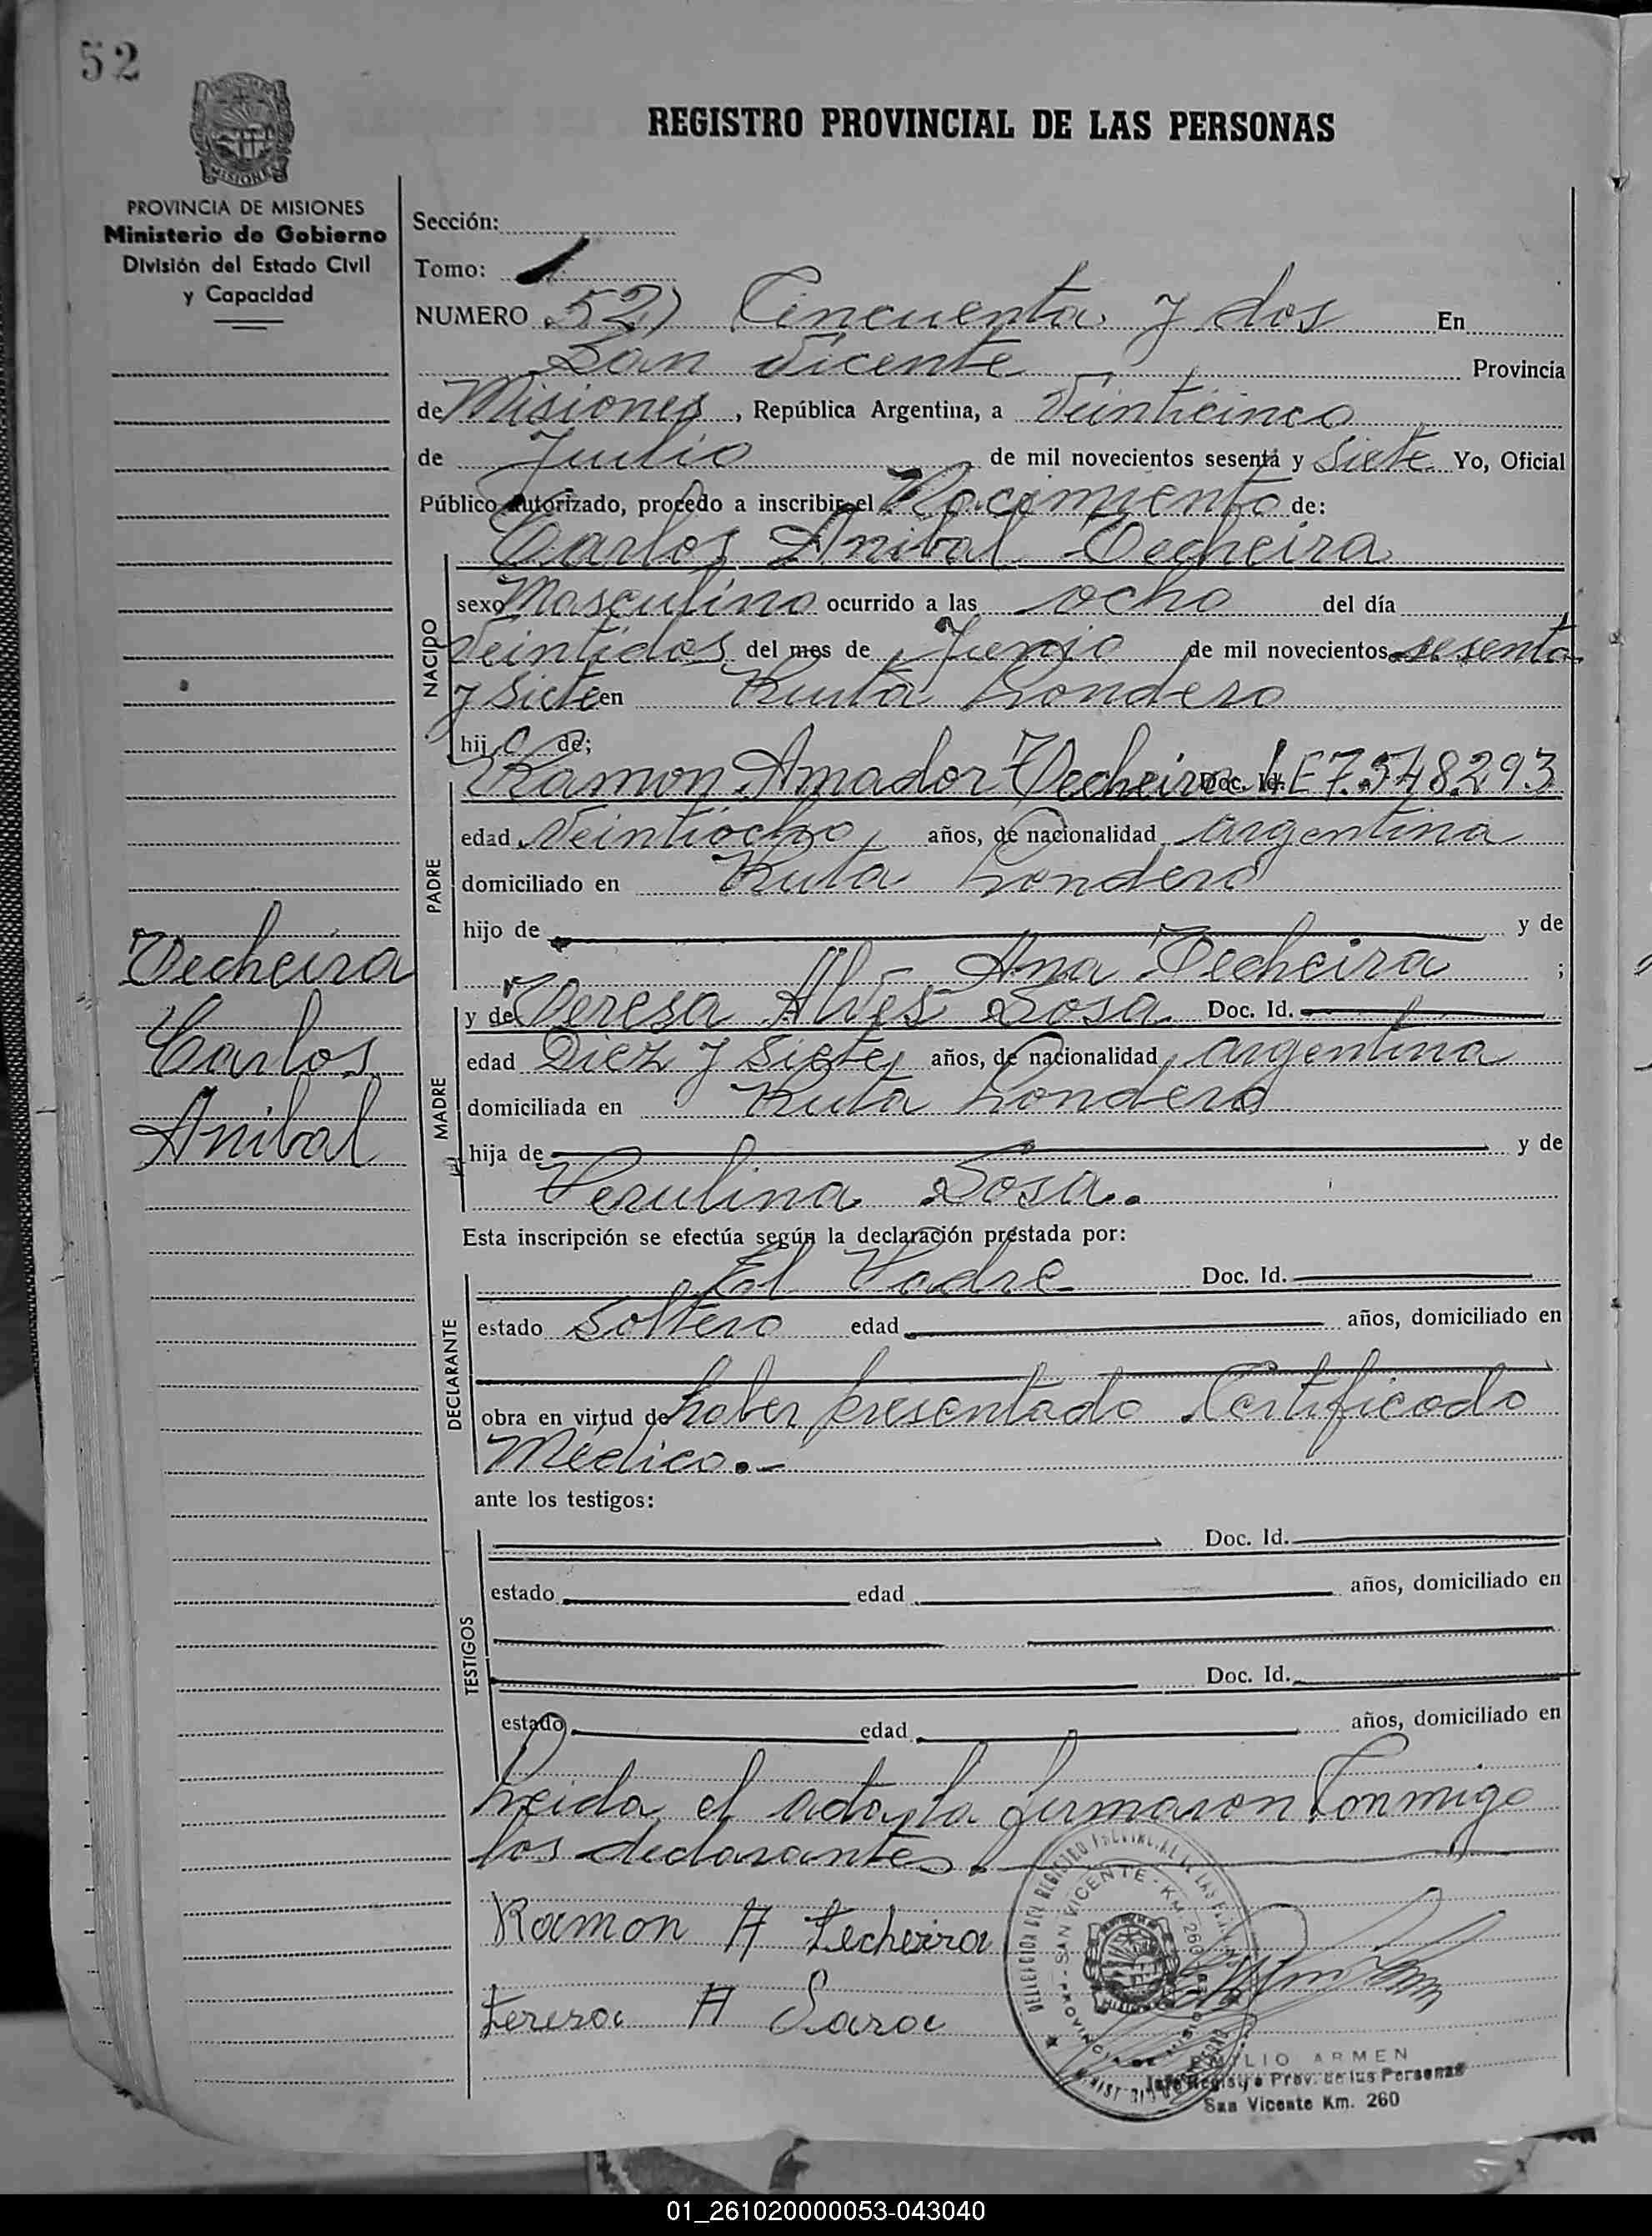 52
REGISTRO PROVINCIAL DE LAS PERSONAS
MISIONES
PROVINCIA DE MISIONES
Ministerio de Gobierno
División del Estado Civil
y Capacidad
Sección:
Tomo: 1
NUMERO 52) Cincuenta y dos En
San Vicente Provincia
de Misiones, República Argentina, a Veinticinco
de Julio de mil novecientos sesenta y Siete Yo, Oficial
Público autorizado, procedo a inscribir el Nacimiento de:
Carlos Anibal Techeira
NACIDO
sexo Masculino ocurrido a las ocho del día
Veintidos del mes de Junio de mil novecientos sesenta
y Siete en Ruta Londero
hijo de;
PADRE
Ramon Amador Techeira Doc. Id. LE 7.548.293
edad Veintiocho años, de nacionalidad argentina
domiciliado en Ruta Londero
hijo de y de
Ana Techeira ;
MADRE
y de Teresa Alves Sosa Doc. Id.
edad Diez y Siete años, de nacionalidad argentina
domiciliada en Ruta Londero
hija de y de
Sosa.
Techeira
Carlos
Anibal
Esta inscripción se efectúa según la declaración prestada por:
DECLARANTE
El Padre Doc. Id.
estado Soltero edad años, domiciliado en
obra en virtud de haber presentado Certificado
Medico.-
ante los testigos:
TESTIGOS
Doc. Id.
estado edad años, domiciliado en
Doc. Id.
estado edad años, domiciliado en
Leida el acta, la firmaron Conmigo
los declarantes.
Ramon A Techeira
Teresa A Sosa
SAN VICENTE - KM 260
EMILIO ARMEN
Jefe Registro Prov. de las Personas
San Vicente Km. 260
01_261020000053-043040